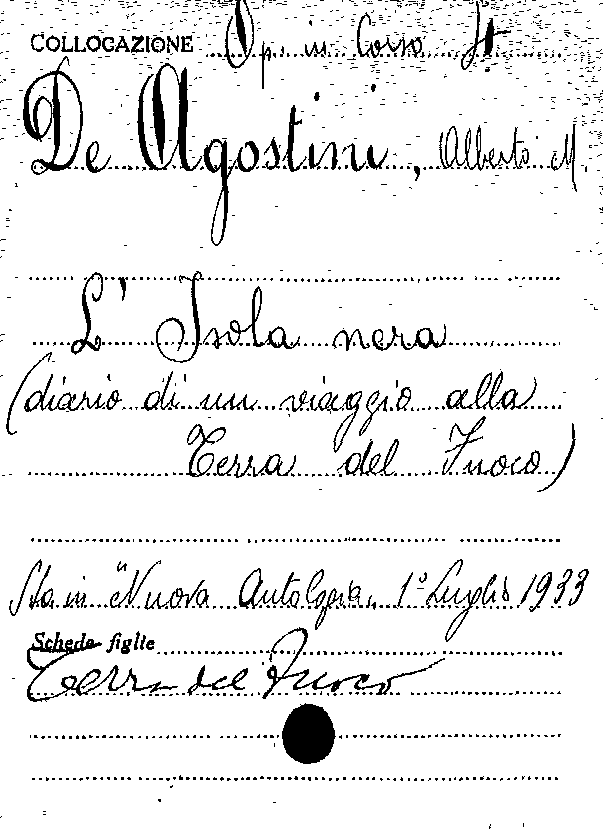 COLLOCAZIONE Op. in Corso It
De Agostini, Alberto M.
L' Isola nera
(diario di un viaggio alla
Terra del Fuoco)
Sta in "Nuova Antologia" 1° Luglio 1933
Schede figlie
Terra del Fuoco